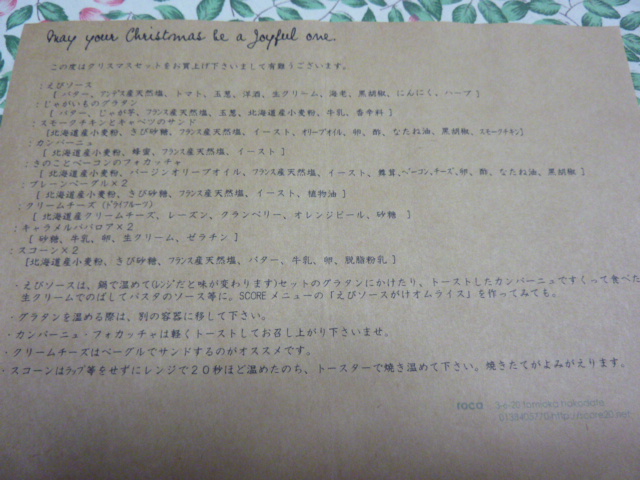 may your Christmas be a joyful one
この度はクリスマスセットをお買上げ下さいまして有難うございます。
：えびソース
[ バター、アンデス産天然塩、トマト、玉葱、洋酒、生クリーム、海老、黒胡椒、にんにく、ハーブ ]
：じゃがいものグラチン
[ バター、じゃが芋、フランス産天然塩、玉葱、北海道産小麦粉、牛乳、香辛料 ]
：スモークチキンとキャベツのサンド
[北海道産小麦粉、きび砂糖、フランス産天然塩、イースト、オリーブオイル、卵、酢、なたね油、黒胡椒、スモークチキン]
：カンパーニュ
[ 北海道産小麦粉、蜂蜜、フランス産天然塩、イースト ]
：きのことベーコンのフォカッチャ
[ 北海道産小麦粉、バージンオリーブオイル、フランス産天然塩、イースト、舞茸、ベーコン、チーズ、卵、酢、なたね油、黒胡椒 ]
：プレーンベーグル×２
[ 北海道産小麦粉、きび砂糖、フランス産天然塩、イースト、植物油 ]
：クリームチーズ (ドライフルーツ)
[ 北海道産クリームチーズ、レーズン、クランベリー、オレンジピール、砂糖 ]
：キャラメルババロア×２
[ 砂糖、牛乳、卵、生クリーム、ゼラチン ]
：スコーン×２
[北海道産小麦粉、きび砂糖、フランス産天然塩、バター、牛乳、卵、脱脂粉乳 ]
・えびソースは、鍋で温めて(レンジだと味が変わります)セットのグラタンにかけたり、トーストしたカンパーニュですくって食べた
生クリームでのばしてパスタのソース等に。SCOREメニューの「えびソースがけオムライス」を作ってみても。
・グラタンを温める際は、別の容器に移して下さい。
・カンパーニュ・フォカッチャは軽くトーストしてお召し上がり下さいませ。
・クリームチーズはベーグルでサンドするのがオススメです。
・スコーンはラップ等をせずにレンジで２０秒ほど温めたのち、トースターで焼き温めて下さい。焼きたてがよみがえります。
roco 3-6-20 tomioka hakodate